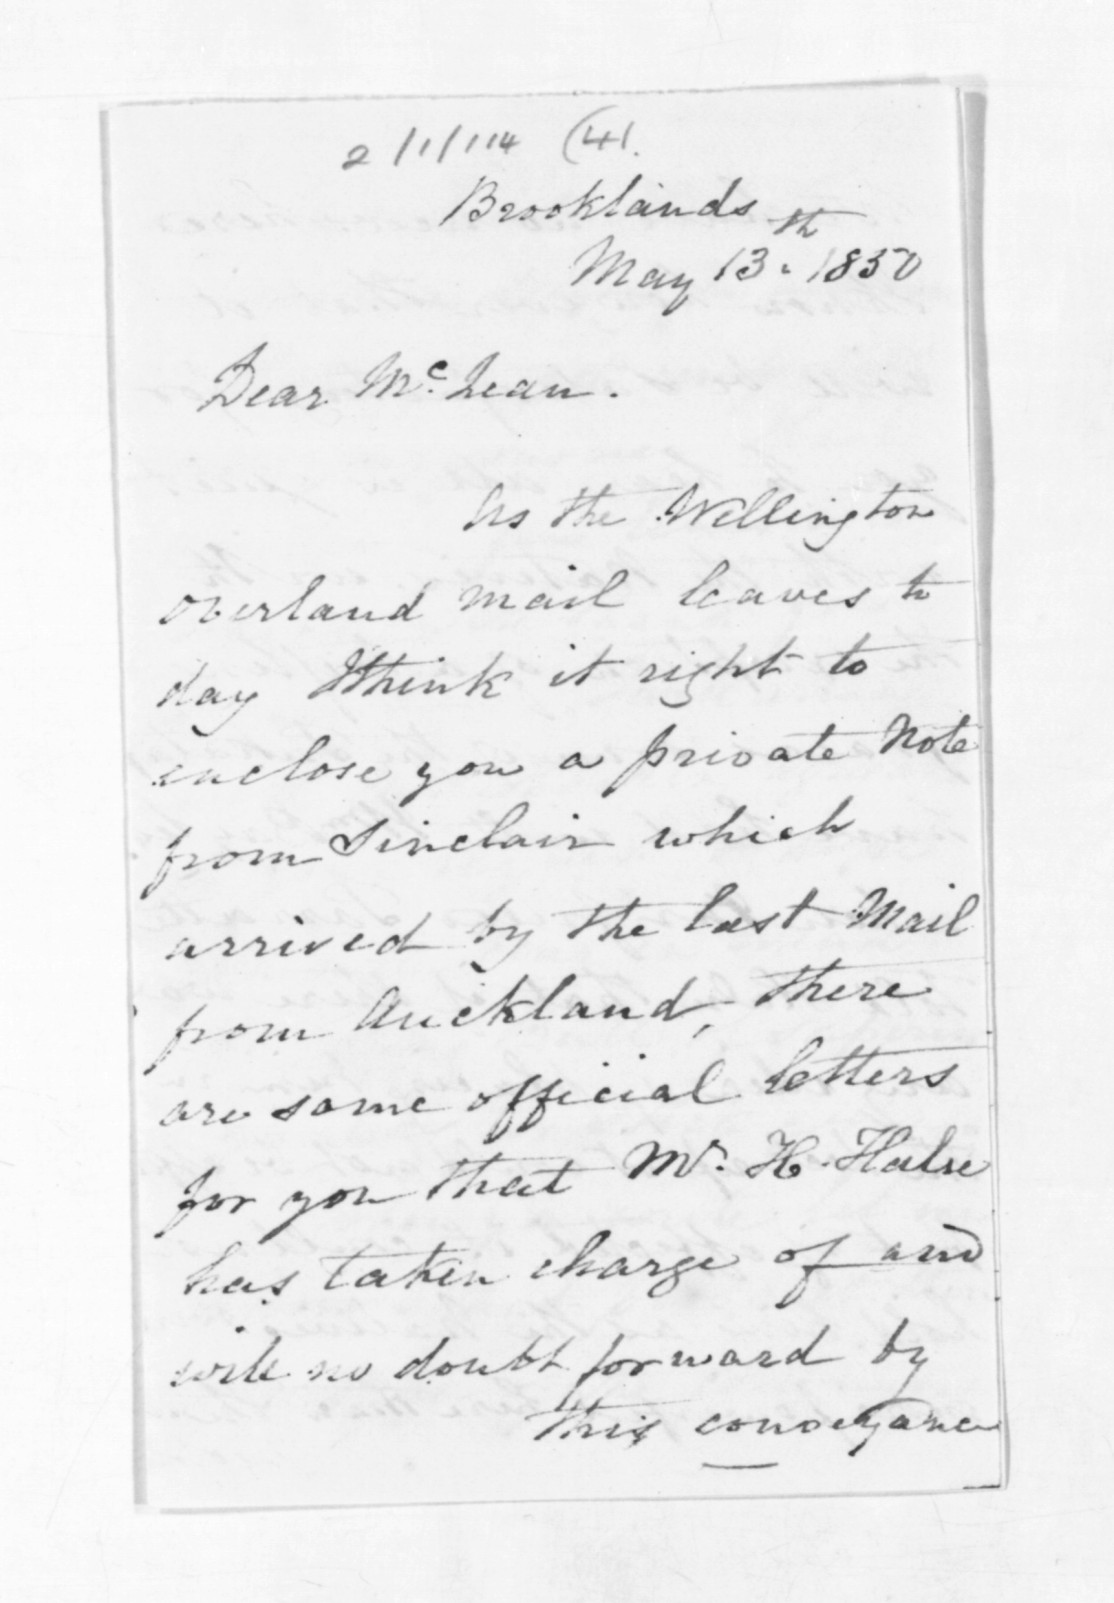 2/1/114 (41.
Brooklands
May 13th 1850
Dear McLean.
As the Wellington
overland mail leaves to
day I think it right to
enclose you a private Note
from Sinclair which
arrived by the last Mail
from Auckland, there
are some official letters
for you that Mr. H. Halse
has taken charge of and
will no doubt forward by
this conveyance